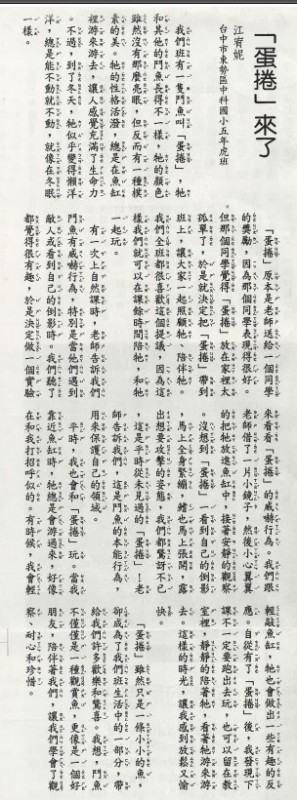 「蛋捲」來了
江宥妮
台中市東勢區中科國小五年虎班
我們班有一隻鬥魚叫「蛋捲」，牠
和其他的鬥魚長得不一樣，牠的顏色
雖然沒有那麼亮眼，但反而有一種樸
素的美。牠的性格活潑，總是在魚缸
裡游來游去，讓人感覺充滿了生命力
。不過，到了冬天，牠似乎變得懶洋
洋，總是能不動就不動，就像在冬眠
一樣。
「蛋捲」原本是老師送給一個同學
的獎勵，因為那個同學表現得很好。
但那個同學覺得「蛋捲」放在家裡太
孤單了，於是就決定把「蛋捲」帶到
班上，讓大家一起照顧牠、陪伴牠。
我們全班都很喜歡這個提議，因為這
樣我們就可以在課餘時間陪牠，和牠
一起玩。
有一次上自然課時，老師告訴我們
鬥魚有威赫行為，特別是當他們遇到
敵人或看到自己的倒影時。我們聽了
都覺得很有趣，於是決定做一個實驗
來看看「蛋捲」的威赫行為。我們跟
老師借了一片小鏡子，然後小心翼翼
的把牠放進魚缸中，接著安靜的觀察
。沒想到「蛋捲」一看到自己的倒影
，馬上全身緊繃，鰭也馬上張開，露
出想要攻擊的姿態，我們都驚訝不已
，這是平時從未見過的「蛋捲」！老
師告訴我們，這是鬥魚的本能行為，
用來保護自己的領域。
平時，我也會和「蛋捲」玩。當我
靠近魚缸時，牠總是會游過來，好像
在和我打招呼似的。有時候，我會輕
輕敲魚缸，牠也會做出一些有趣的反
應。自從有了「蛋捲」後，我發現下
課不一定要跑出去玩，也可以留在教
室裡，靜靜的陪著牠，看著牠游來游
去。這樣的時光，讓我感到放鬆又愉
快。
「蛋捲」雖然只是一條小小的魚，
卻成為了我們班生活中的一部分，帶
給我們許多歡樂和驚喜。我想，鬥魚
不僅僅是一種觀賞魚，更像是一個好
朋友，陪伴著我們，讓我們學會了觀
察、耐心和珍惜。